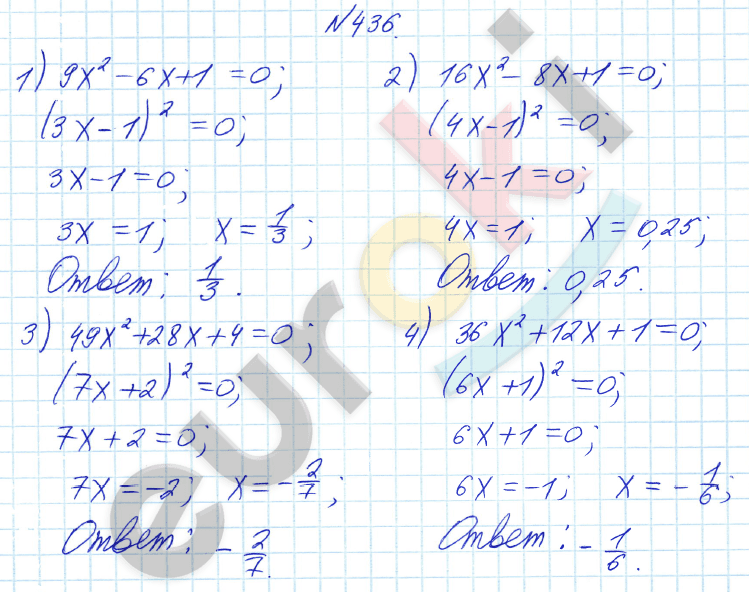 №436.
1) 9x² - 6x + 1 = 0;
(3x - 1)² = 0;
3x - 1 = 0;
3x = 1; x = 1/3;
Ответ: 1/3.
2) 16x² - 8x + 1 = 0;
(4x - 1)² = 0;
4x - 1 = 0;
4x = 1; x = 0,25;
Ответ: 0,25.
3) 49x² + 28x + 4 = 0;
(7x + 2)² = 0;
7x + 2 = 0;
7x = -2; x = -2/7;
Ответ: -2/7.
4) 36x² + 12x + 1 = 0;
(6x + 1)² = 0;
6x + 1 = 0;
6x = -1; x = -1/6;
Ответ: -1/6.
euroki